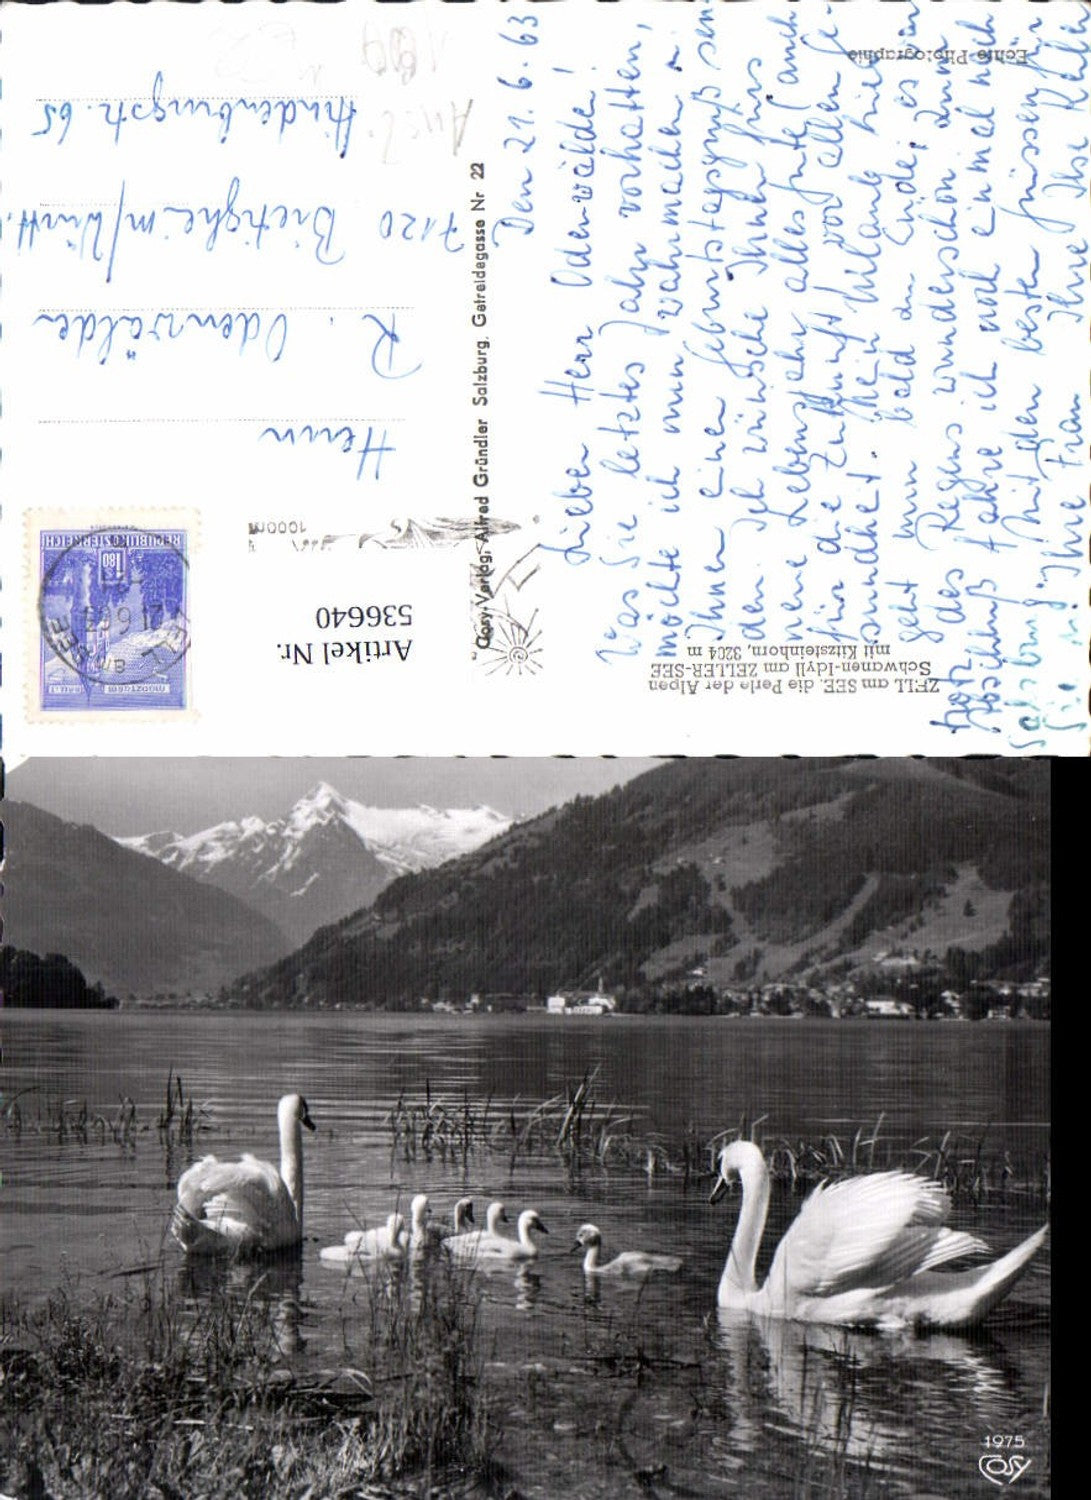 ZELL am SEE, die Perle der Alpen
Schwanen-Idyll am ZELLER-SEE
mit Kitzsteinhorn, 3204 m
Echte Photographie
Den 21. 6. 63
Lieber Herr Oderwälde!
Was Sie letztes Jahr vorhatten,
möchte ich nun wahrmachen u.
Ihnen einen Geburtstagsgruß sen-
den. Ich wünsche Ihnen fürs
neue Lebensjahr alles Gute (auch
für die Zukunft) vor allem Ge-
sundheit. Mein Urlaub hier
geht nun bald zu Ende; es war
trotz des Regens wunderschön. Zum
Abschluß fahre ich noch einmal nach
Salzburg. Mit den besten Grüssen für
Sie u. Ihre Frau Ihre
"Cosy"-Verlag, Alfred Gründler Salzburg, Getreidegasse Nr 22
Artikel Nr.
536640
1000m
REPUBLIK ÖSTERREICH
1.80
ZELL am SEE
21.6.63
Herrn
R. Oderwälde
7120 Bietigheim/Württ.
Hindenburgstr. 65
1975
COSY